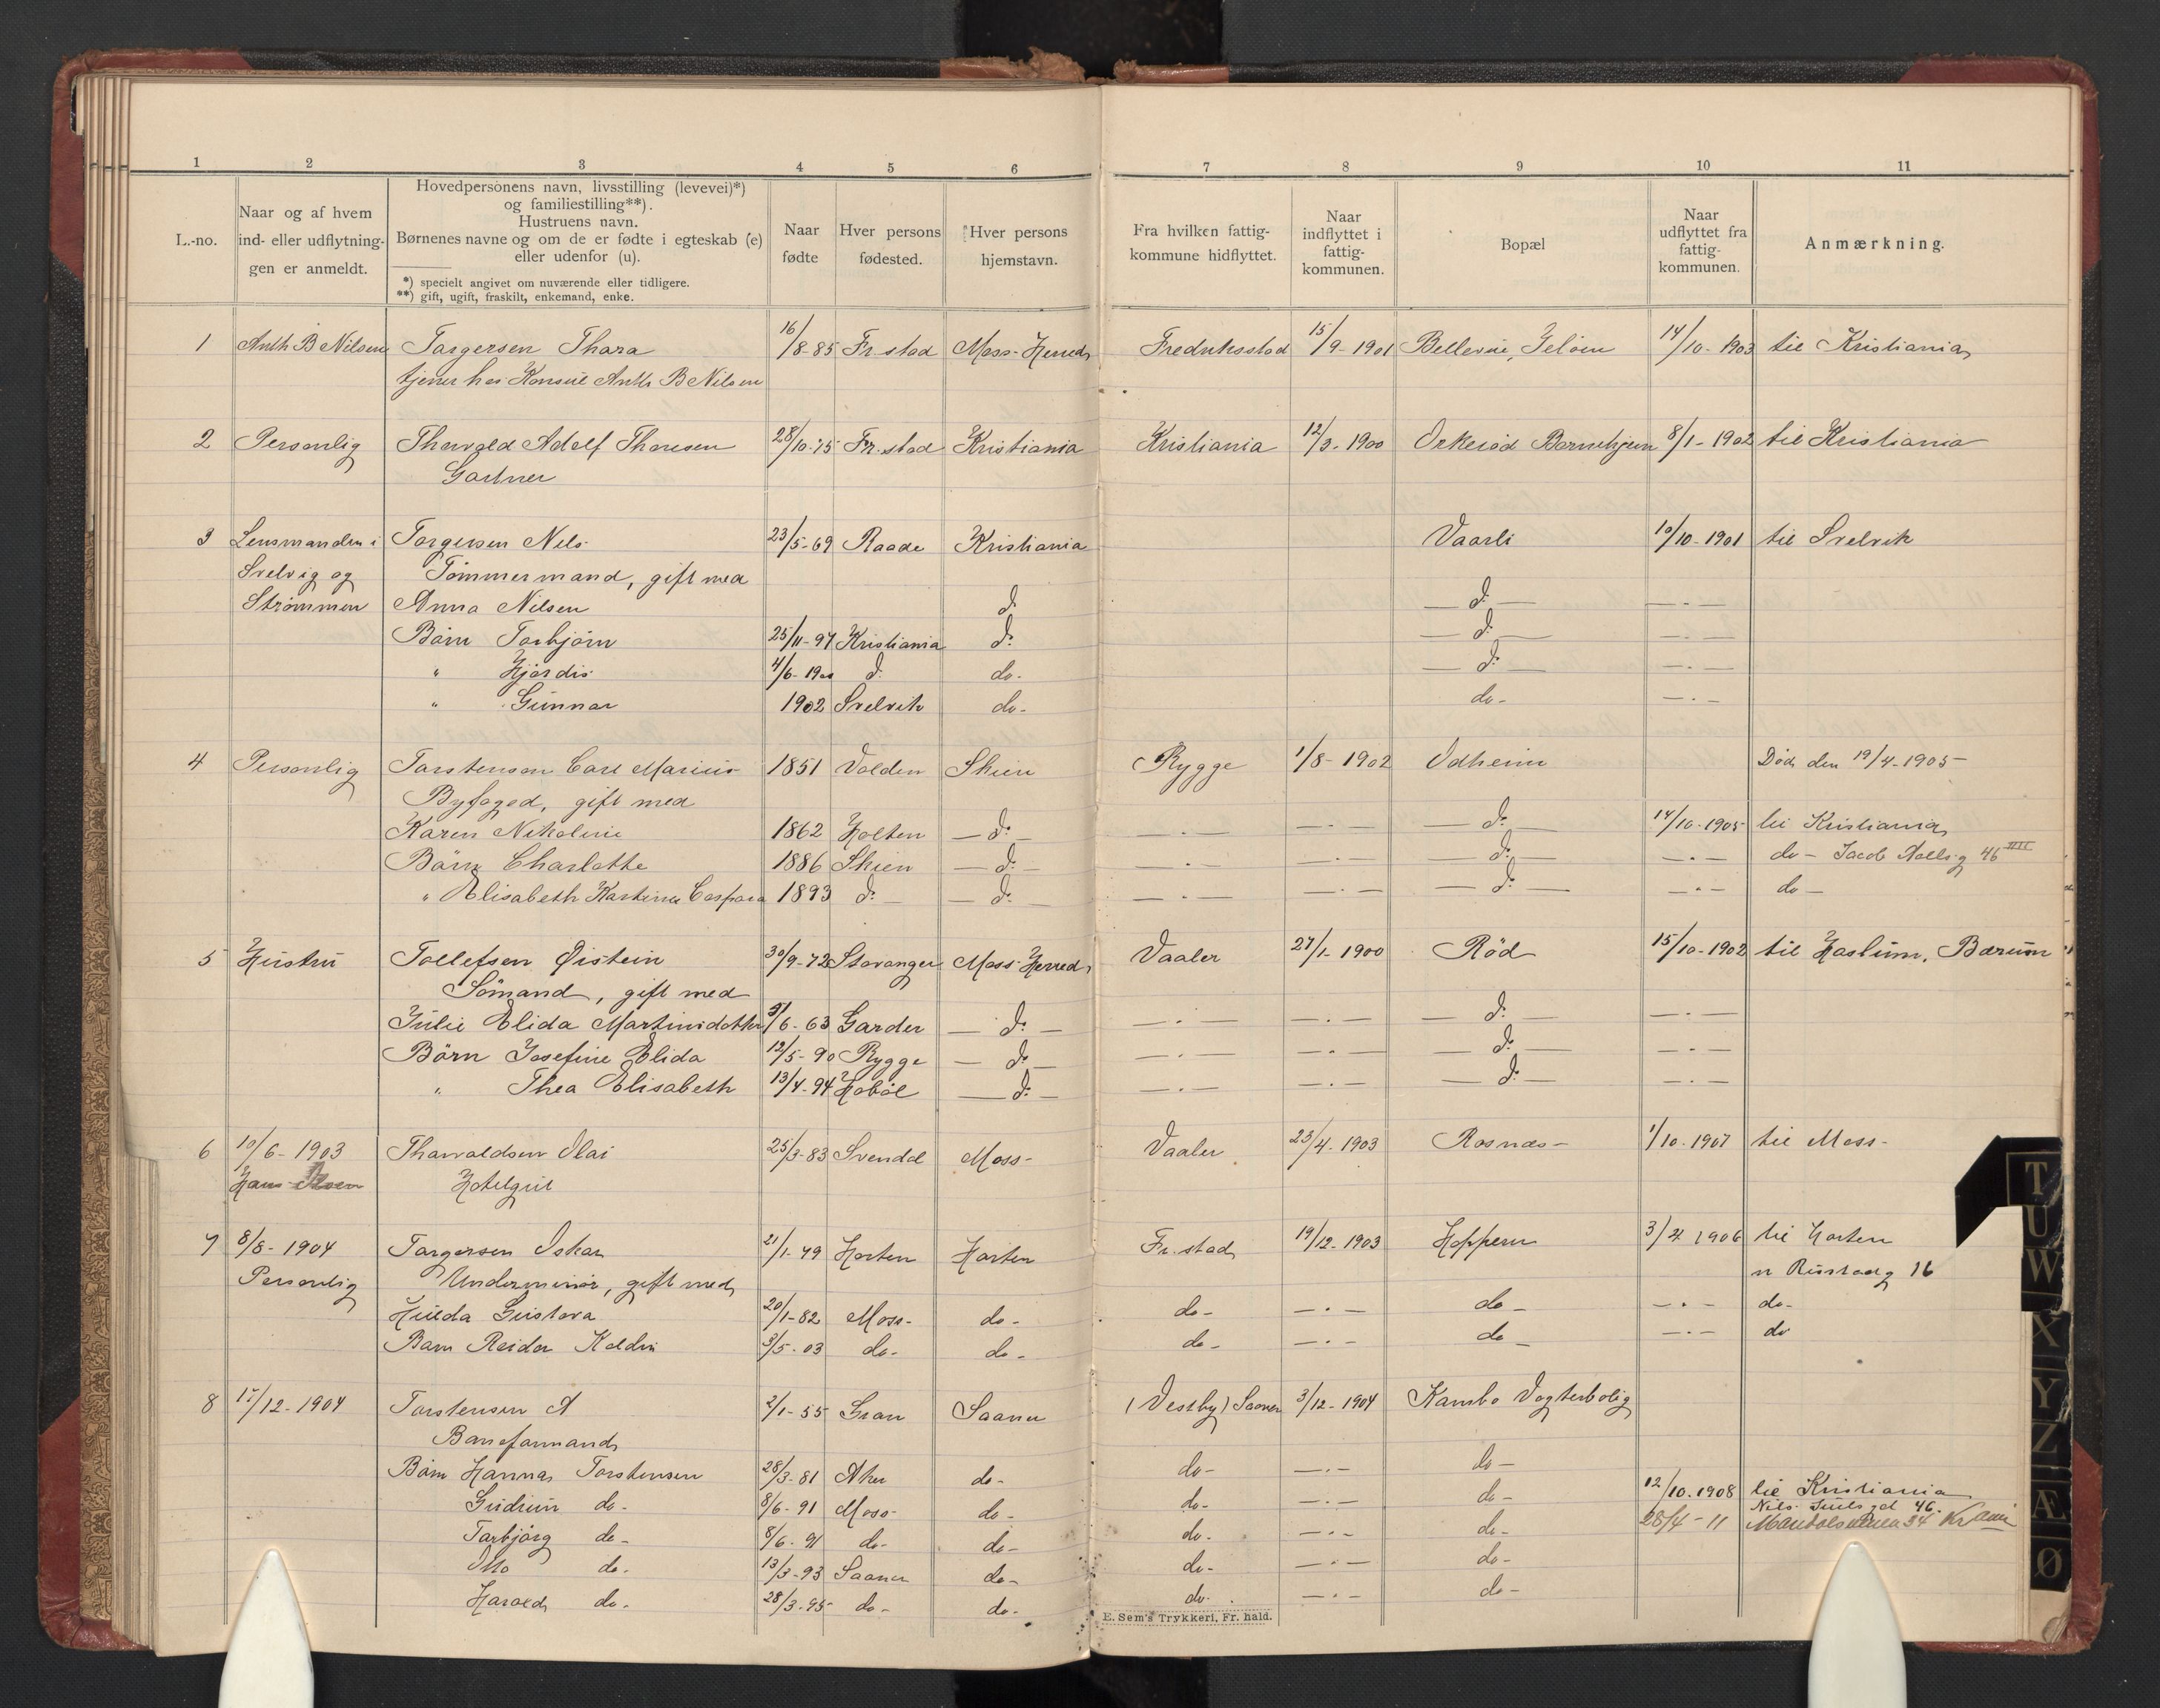 1 2 3 4 5 6 7 8 9 10 11
L.-no.
Naar og af hvem
ind- eller udflytnin-
gen er anmeldt.
Hovedpersonens navn, livsstilling (levevei)*)
og familiestilling**).
Hustruens navn.
Børnenes navne og om de er fødte i egteskab (e)
eller udenfor (u).
*) specielt angivet om nuværende eller tidligere.
**) gift, ugift, fraskilt, enkemand, enke.
Naar
fødte
Hver persons
fødested.
Hver persons
hjemstavn.
Fra hvilken fattig-
kommune hidflyttet.
Naar
indflyttet i
fattig-
kommunen.
Bopæl
Naar
udflyttet fra
fattig-
kommunen.
Anmærkning.
1 Anth B Nilsen Torgersen Thora 16/8-85 Fr.stad Moss-Herred Fredriksstad 15/9-1901 Bellevue, Jeløen 14/10-1903 til Kristiania
tjener hos Konsul Anth B Nilsen
2 Personlig Thorvald Adolf Thoresen 28/10-75 Fr.stad Kristiania Kristiania 12/3-1900 Orkerød Barnehjem 8/1-1902 til Kristiania
Gartner
3 Lensmanden i Torgersen Nels 23/5-69 Raade Kristiania Vaarli 10/10-1901 til Svelvik
Svelvig og Tømmermand, gift med
Strømmen Anna Nilsen do — do — — . —
Børn Torbjørn 25/11-97 Kristiania do — do — — . —
" Hjørdis 4/6-1900 do do- — do — — . —
" Gunnar 1902 Svelvik do- do- — . —
4 Personlig Torstensen Carl Marius 1851 Volden Skien Rygge 1/8-1902 Odheim Død den 19/4-1905-
Byfoged, gift med
Karen Nikoline 1862 Holten — do — — . — — . — — do — 14/10-1905 til Kristiania
Børn Charlotte 1886 Skien — do — — . — — . — — do — — . — do- Jacob Aallsg 46 III
" Elisabeth Kastine Caspara 1893 do — — do — — . — — . — — do — — . — do —
5 Hustru Tollefsen Øistein 30/9-72 Stavanger Moss-Herred Vaaler 27/1-1900 Rød 15/10-1902 til Haslum, Bærum
Sømand, gift med
Julie Elida Martinsdotter /6-63 Garder — do — — . — — . — — do — — . —
Børn Josefine Elida 12/5-90 Rygge — do — — . — — . — — do — — . —
" Thea Elisabeth 13/4-94 Hobøl — do — — . — — . — — do — — . —
6 10/6-1903 Thorvaldsen Olai 25/3-83 Svendal Moss- Vaaler 23/4-1903 Rosnæs- 1/10-1907 til Moss-
Hans Hotelgut
7 8/8-1904 Torgersen Oskar 21/1-79 Horten Horten Fr.stad 19/12-1903 Hoppern 3/4 1906 til Horten
Personlig Underminør, gift med n Rustadg 16
Hulda Gustava 20/1-82 Moss- do- do- — . — do- — . — do-
Barn Reidar Koldin 3/5-03 do- do- do- — . — do- — . — do
8 17/12-1904 Torstensen A 2/1-55 Gran Saaner (Vestby) Saaner 3/12-1904 Kambo Vogterbolig
Baneformand
Børn Hannas Torstensen 28/3-81 Aker do- do- — . — do-
Gudrun do- 8/6-91 Moss- do- do- — . — do- 12/10-1908 til Kristiania
Nils Juels gd 46.
Torbjørg do- 8/6-91 do- do- do- — . — do- 28/4-11 34 Kr.ania
Otto do- 13/3-93 Saaner do- do- — . — do-
Harald do- 28/3-95- do- do- do- — . — do-
E. Sem's Trykkeri, Fr. hald.
T
U
W
X
Y
Z
Æ
Ø